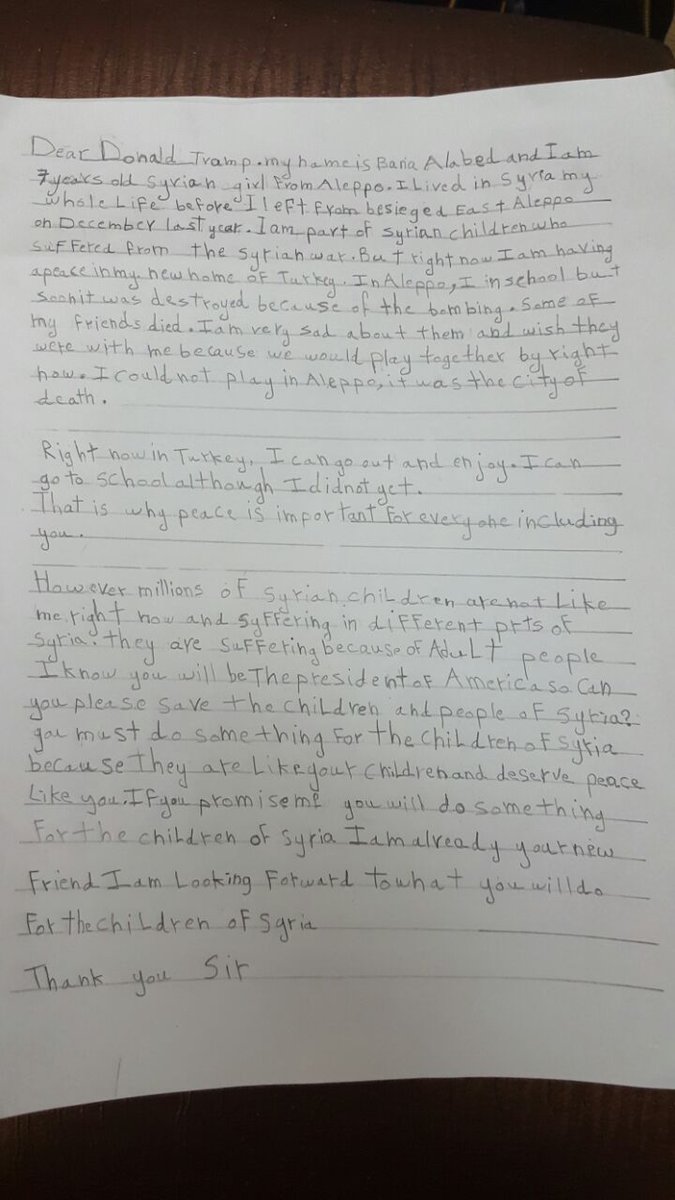 Dear Donald Tramp. my name is Bana Alabed and I am
7 years old Syrian girl From Aleppo. I Lived in Syria my
whole Life before I left from besieged East Aleppo
on December last year. I am part of Syrian children who
suffered from the Syrian war. But right now I am having
a peace in my new home of Turkey. In Aleppo, I in school but
soon it was destroyed because of the bombing. Some of
my friends died. I am very sad about them and wish they
were with me because we would play together by right
now. I could not play in Aleppo, it was the city of
death.
Right now in Turkey, I can go out and enjoy. I can
go to school although I didnot yet.
That is why peace is important For everyone including
you.
However millions of Syrian children are not Like
me right now and syffering in different prts of
Syria. they are suffering because of AduLt people
I know you will be The president of America so Can
you please save the children and people of Syria?
you must do something For the children of Syria
because They are Like your children and deserve peace
Like you. If you promise me you will do something
for the children of Syria I am already your new
Friend I am Looking Forward to what you will do
For the chiLdren of Syria
Thank you Sir